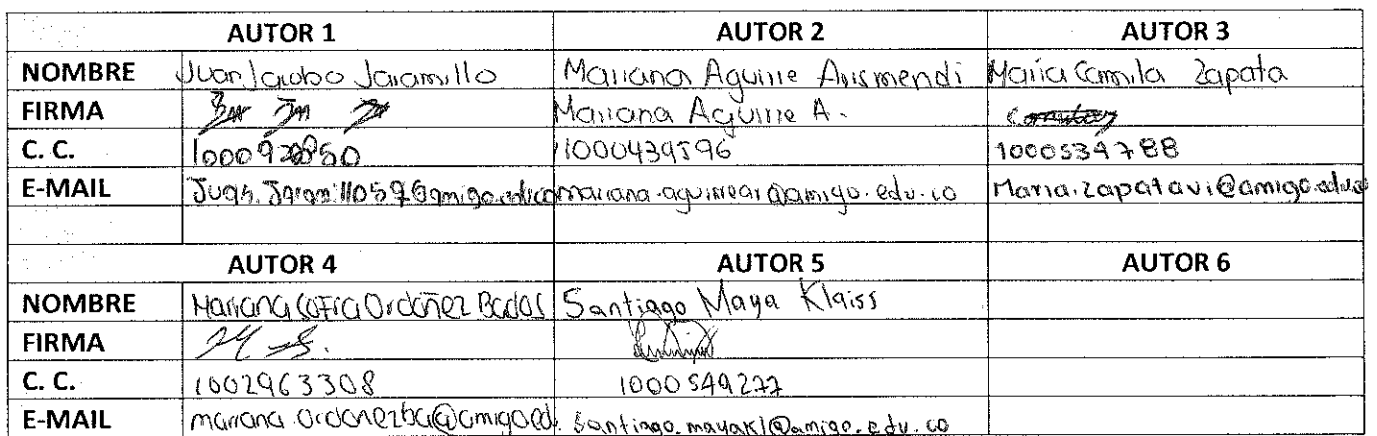 AUTOR 1 AUTOR 2 AUTOR 3
NOMBRE Juan Jacobo Jaramillo Mariana Aguirre Arismendi Maria Camila Zapata
FIRMA Mariana Aguirre A.
C. C. 1000439596 1000534788
E-MAIL mariana.aguirrear@amigo.edu.co Maria.zapatavi@amigo.edu.co
AUTOR 4 AUTOR 5 AUTOR 6
NOMBRE Mariana Ordoñez Santiago Maya Klaiss
FIRMA
C. C. 1002963308 1000549277
E-MAIL mariana.ordonezba@amigo.ed. santiago.mayakl@amigo.edu.co